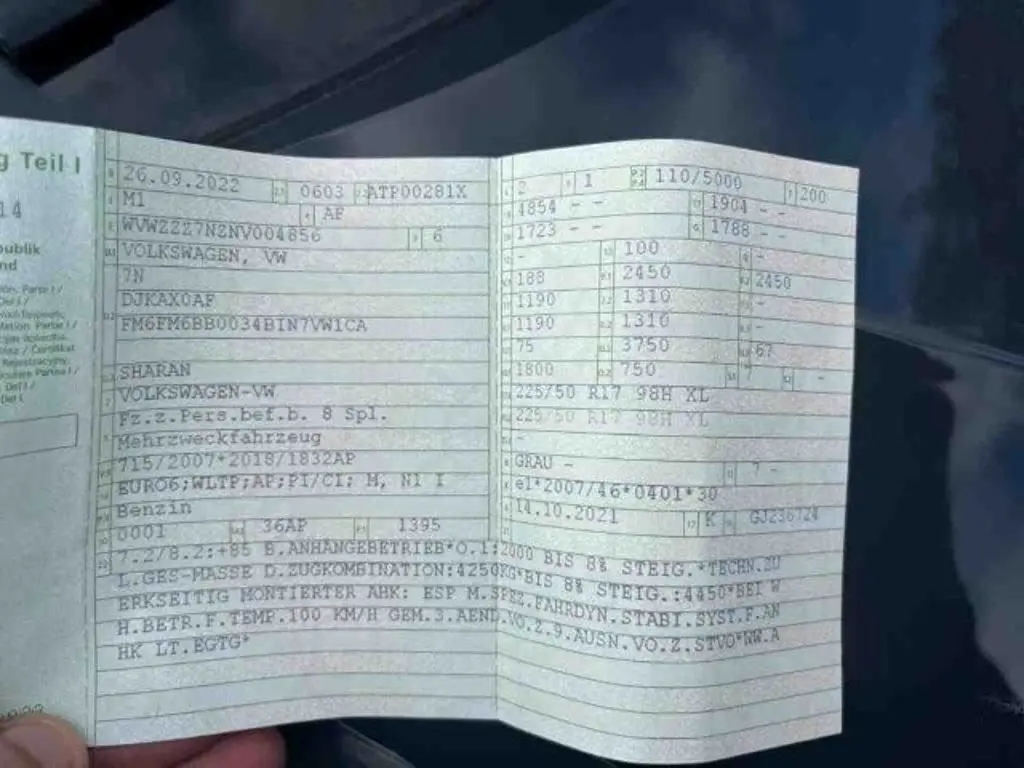 g Teil I
14
publik
nd
26.09.2022 0603 ATP00281X
M1 AF
WVWZZZ7NZNV004856 6
VOLKSWAGEN, VW
7N
DJKAX0AF
FM6FM6BB0034BIN7VW1CA
SHARAN
VOLKSWAGEN-VW
Fz.z.Pers.bef.b. 8 Spl.
Mehrzweckfahrzeug
715/2007*2018/1832AP
EURO6;WLTP;AP;PI/CI; M, N1 I
Benzin
0001 36AP 1395
2 1 110/5000 200
4854 - - 1904 - -
1723 - - 1788 - -
- 100 -
188 2450 2450
1190 1310 -
1190 1310 -
75 3750 67
1800 750 7 -
225/50 R17 98H XL
225/50 R17 98H XL
-
GRAU - 7 -
e1*2007/46*0401*30
14.10.2021 K GJ236724
7.2/8.2:+85 B.ANHÄNGEBETRIEB*O.1:2000 BIS 8% STEIG.*TECHN.ZU
L.GES-MASSE D.ZUGKOMBINATION:4250KG*BIS 8% STEIG.:4450*BEI W
ERKSEITIG MONTIERTER AHK: ESP M.SPEZ.FAHRDYN.STABI.SYST.F.AN
H.BETR.F.TEMP.100 KM/H GEM.3.AEND.VO.Z.9.AUSN.VO.Z.STVO*WW.A
HK LT.EGTG*